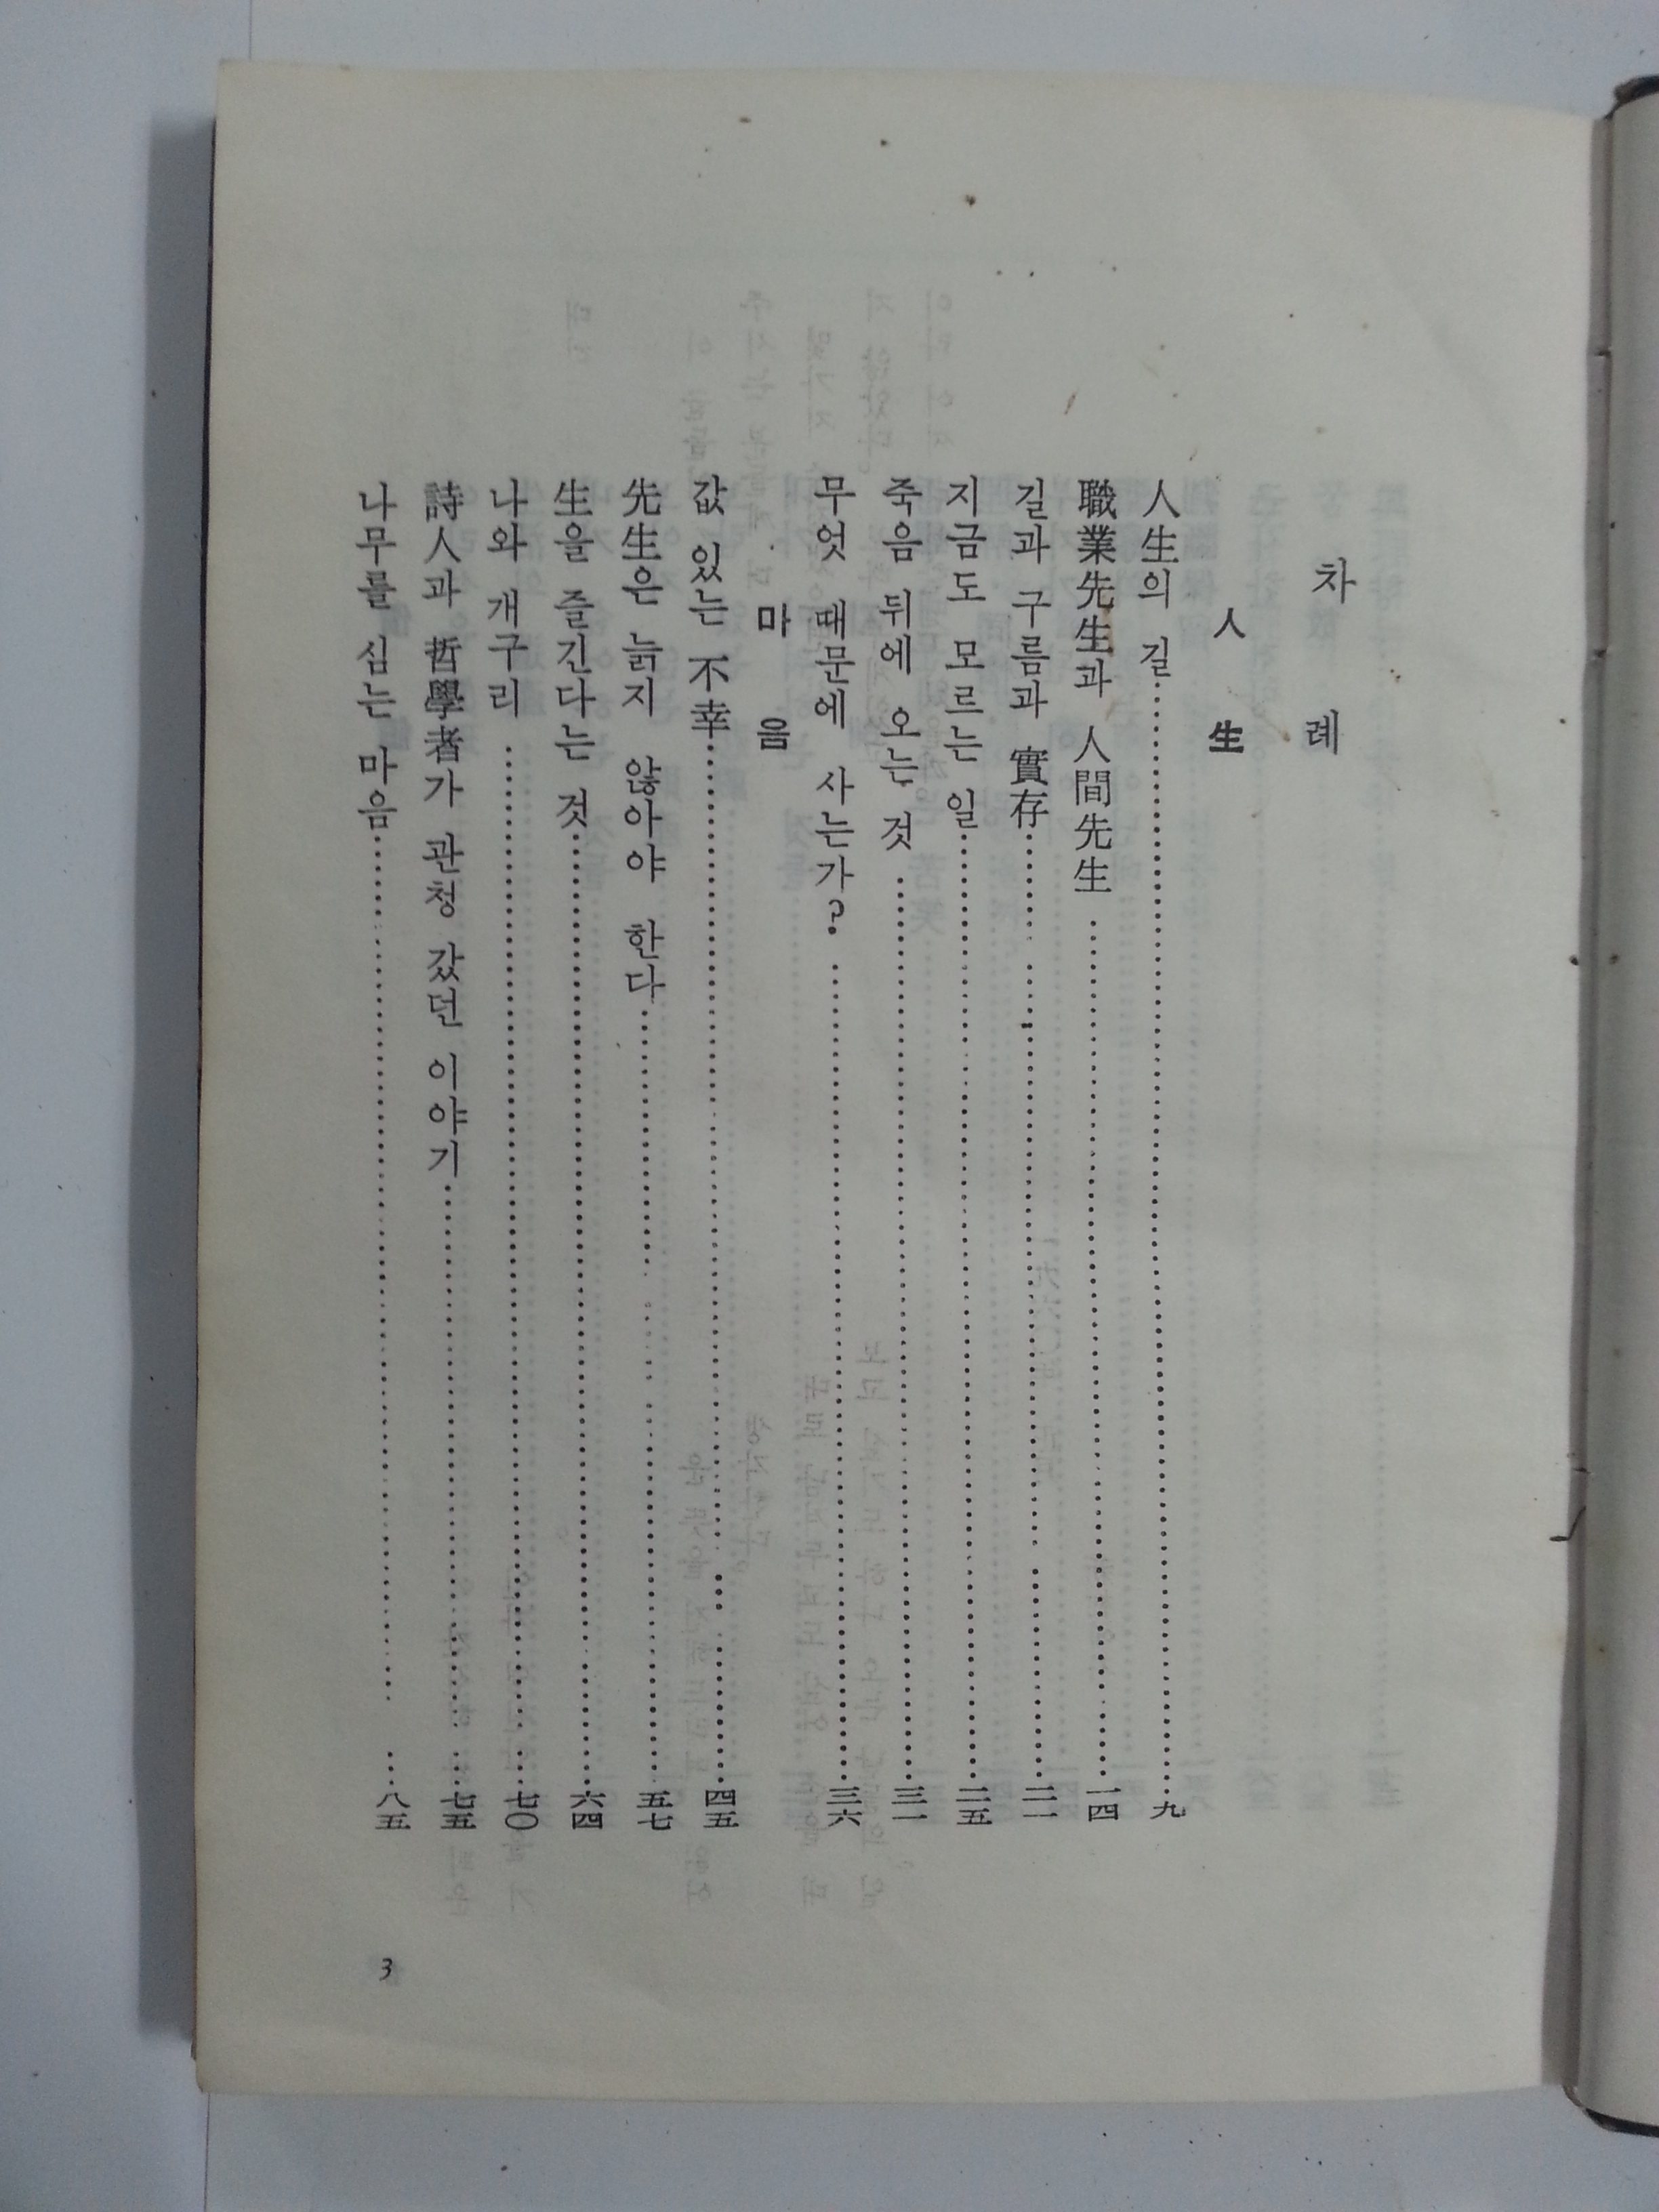 차 례
人 生
人生의 길……………九
職業先生과 人間先生……………一四
길과 구름과 實存……………二一
지금도 모르는 일……………二五
죽음 뒤에 오는 것……………三一
무엇 때문에 사는가?……………三六
마 음
값 있는 不幸……………四五
先生은 늙지 않아야 한다……………五七
生을 즐긴다는 것……………六四
나와 개구리……………七〇
詩人과 哲學者가 관청 갔던 이야기……………七五
나무를 심는 마음……………八五
3